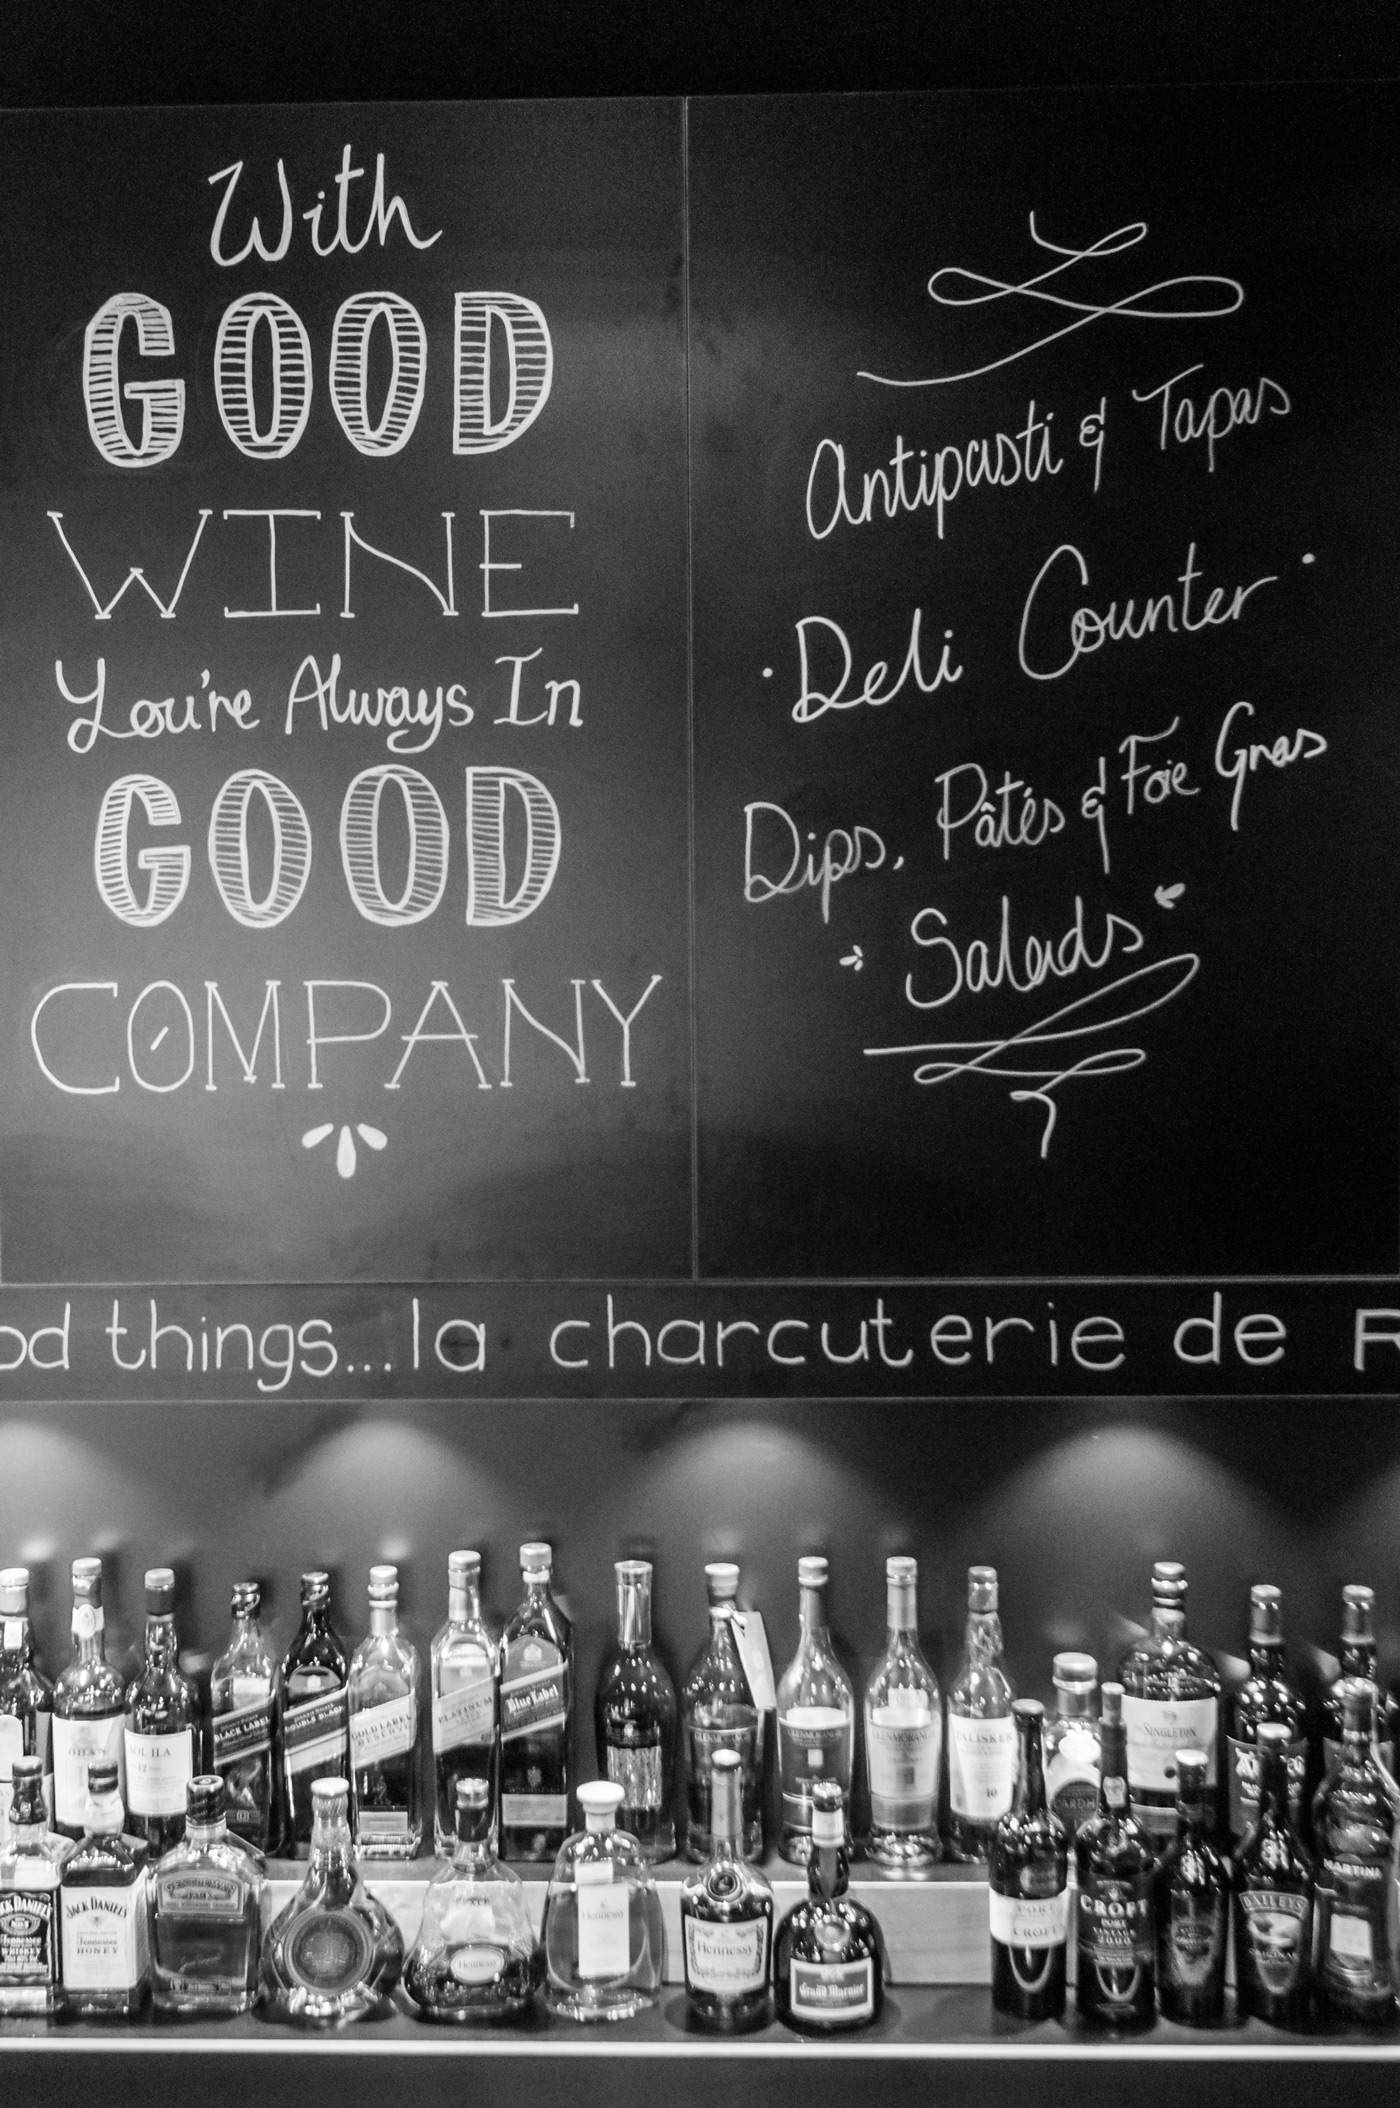 With
GOOD
WINE
You're Always In
GOOD
COMPANY
Antipasti & Tapas
Deli Counter
Dips, Pâtés & Foie Gras
Salads
od things...la charcuterie de
BLACK LABEL
DOUBLE BLACK
GOLD LABEL
RESERVE
PLATINUM
Blue Label
GLENMORANGIE
GLENMORANGIE
GLENMORANGIE
TALISKER
10
SINGLETON
JACK DANIEL'S
Tennessee
WHISKEY
JACK DANIEL'S
Tennessee
HONEY
GENTLEMAN
JACK
Hennessy
Hennessy
Hennessy
Grand Marnier
PORT
CROFT
CROFT
PORT
VINTAGE
2000
BAILEYS
ORIGINAL
MARTINI